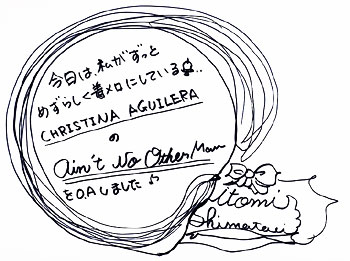 今日は、私がずっと
めずらしく着メロにしている
CHRISTINA AGUILERA
の
Ain't No Other Man
をO.Aしました♪
Hitomi
Shimatani